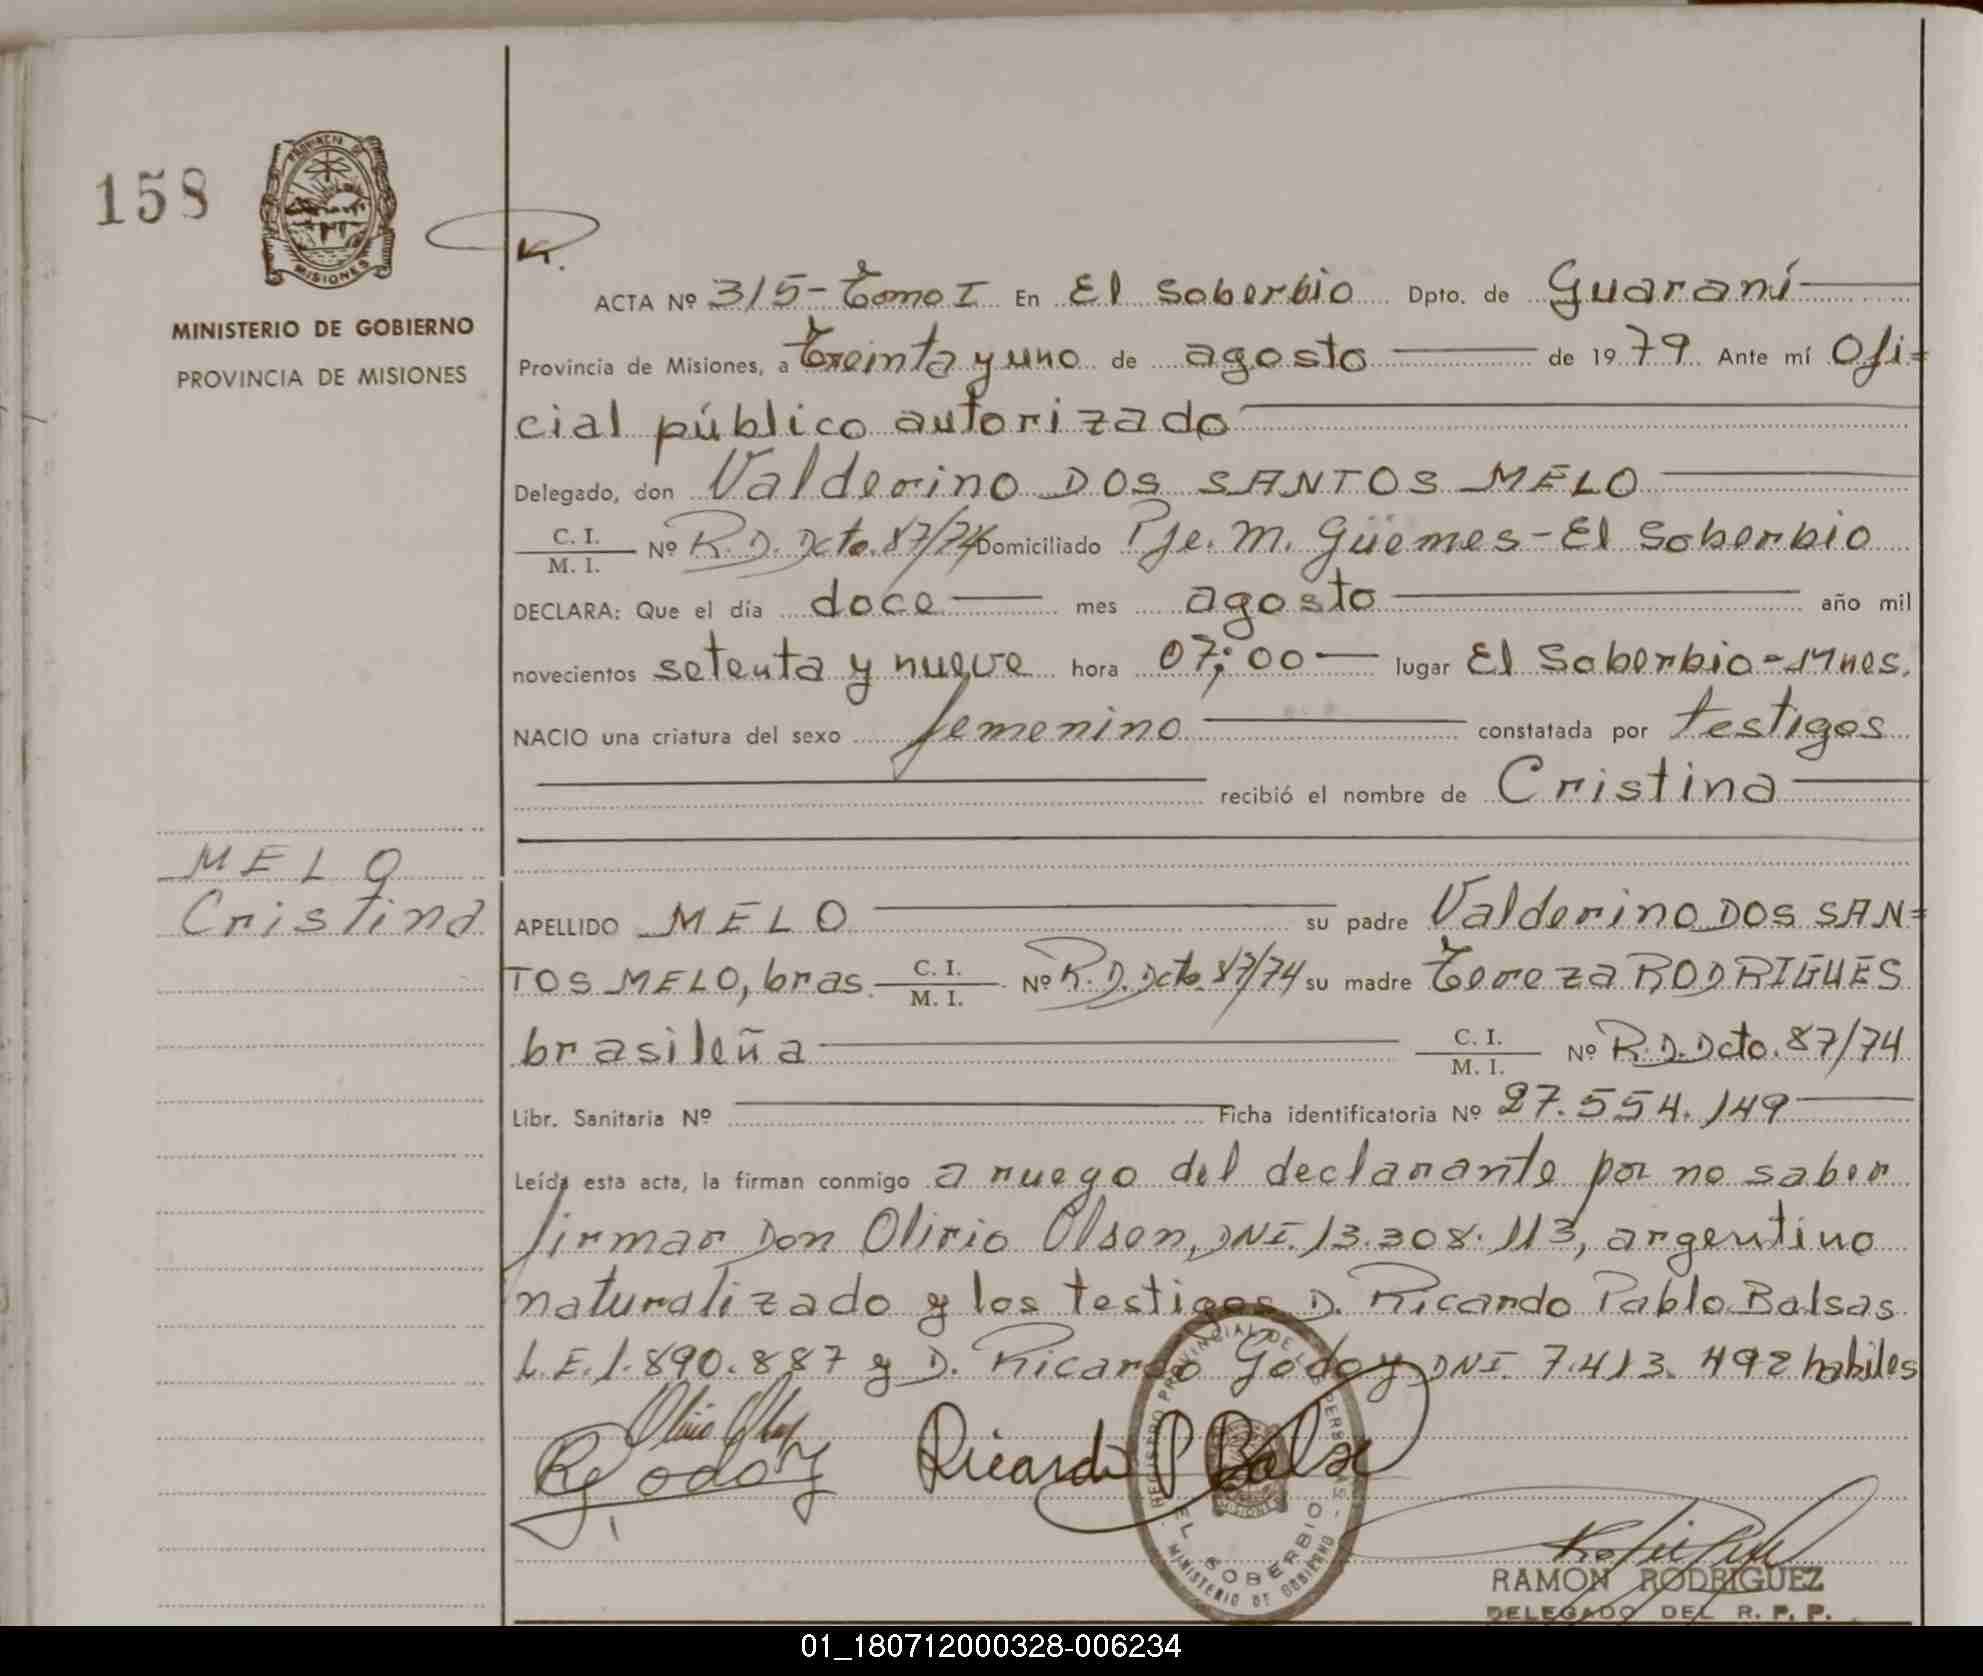 158
PROVINCIA DE
MISIONES
MINISTERIO DE GOBIERNO
PROVINCIA DE MISIONES
ACTA Nº 315- Tomo I En El Soberbio Dpto. de Guaraní
Provincia de Misiones, a treinta y uno de agosto de 19 79 Ante mí Ofi=
cial público autorizado
Delegado, don Valderino DOS SANTOS MELO
C. I.
M. I. Nº R. D. Dcto. 87/74 Domiciliado Pje. M. Güemes - El Soberbio
DECLARA: Que el día doce mes agosto año mil
novecientos setenta y nueve hora 07;00 lugar El Soberbio - Mnes.
NACIO una criatura del sexo femenino constatada por testigos
recibió el nombre de Cristina
MELO
Cristina
APELLIDO MELO su padre Valderino DOS SAN=
TOS MELO, bras. C. I.
M. I. Nº R. D. Dcto 87/74 su madre Tereza RODRIGUES
brasileña C. I.
M. I. Nº R. D. Dcto. 87/74
Libr. Sanitaria Nº Ficha identificatoria Nº 27.554.149
Leída esta acta, la firman conmigo a ruego del declarante por no saber
firmar Don Olirio Olsen, DNI. 13.308.113, argentino
naturalizado y los testigos D. Ricardo Pablo Balsas
L.E. 1.890.887 y D. Ricardo Godoy DNI. 7.413.492 habiles
R Godoy Ricardo P Balsa
REGISTRO PROVINCIAL DE LAS PERSONAS
EL SOBERBIO
MINISTERIO DE GOBIERNO
RAMON RODRIGUEZ
DELEGADO DEL R. P. P.
01_180712000328-006234